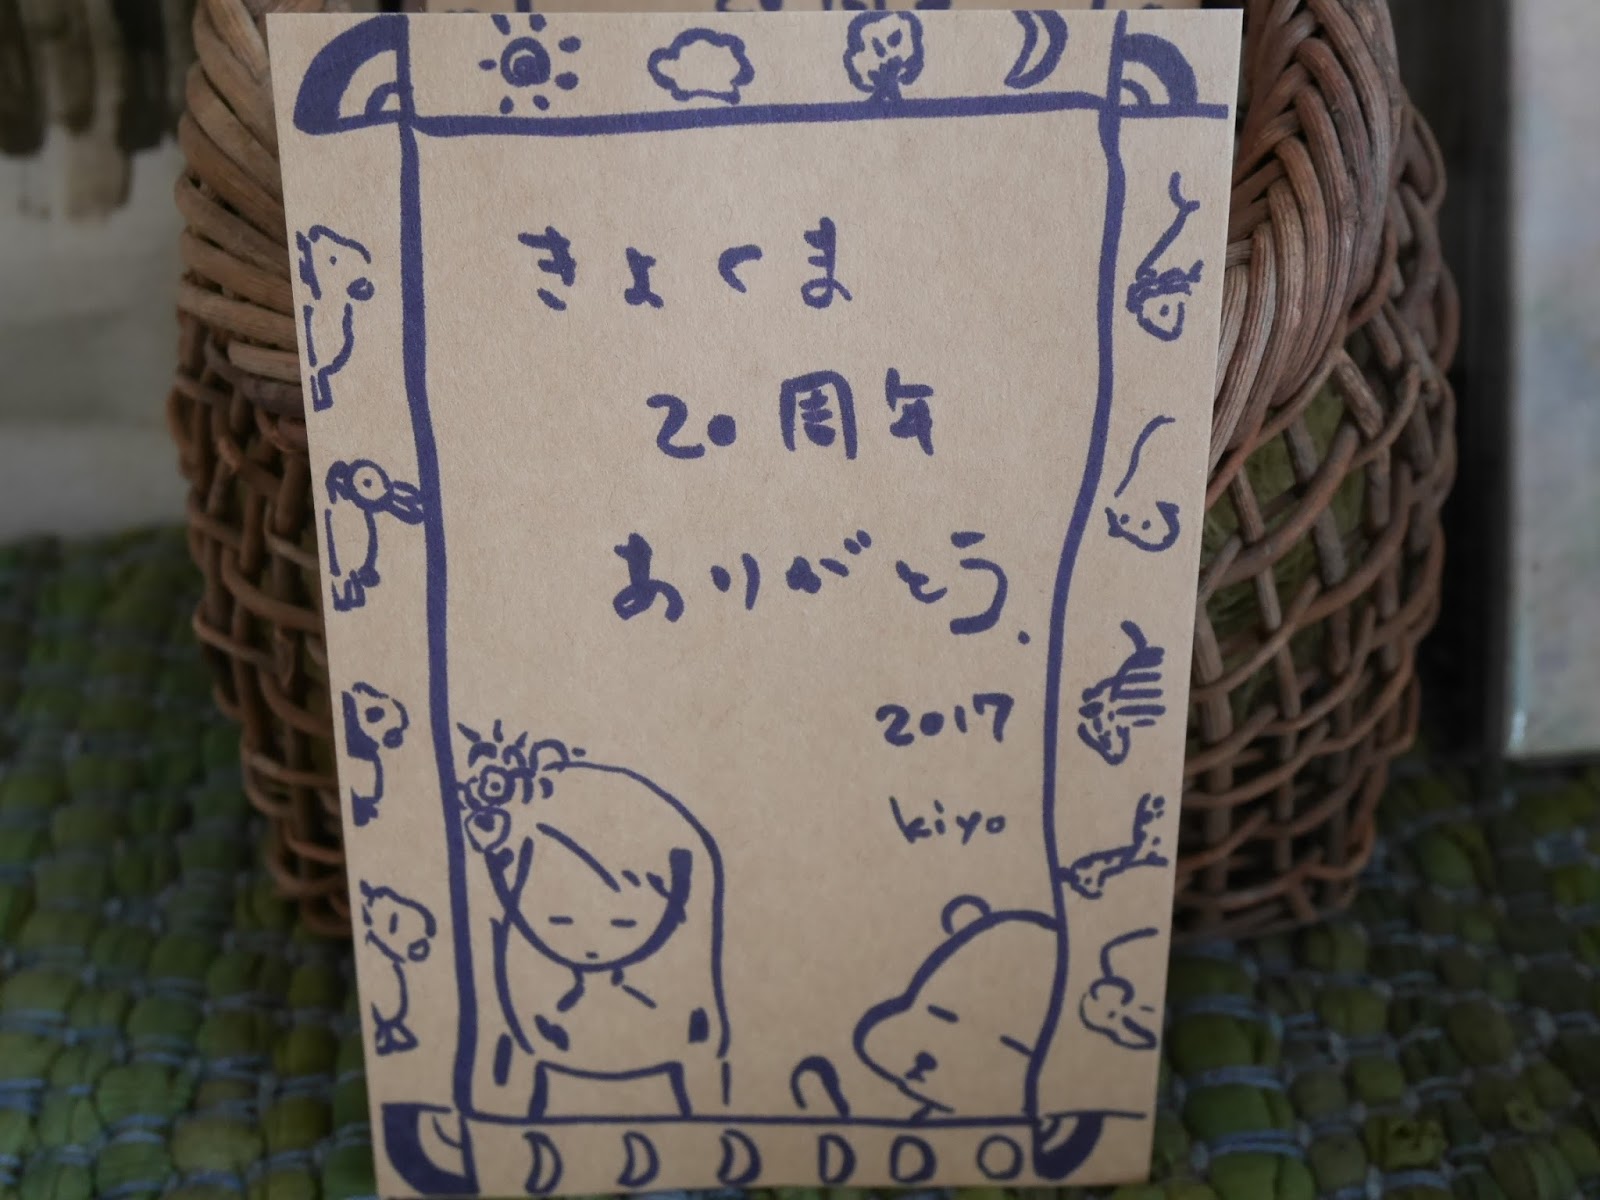 きよくま
20周年
ありがとう.
2017
kiyo